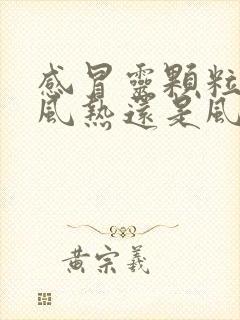 感冒靈顆粒
風熱還是風
黃宗羲